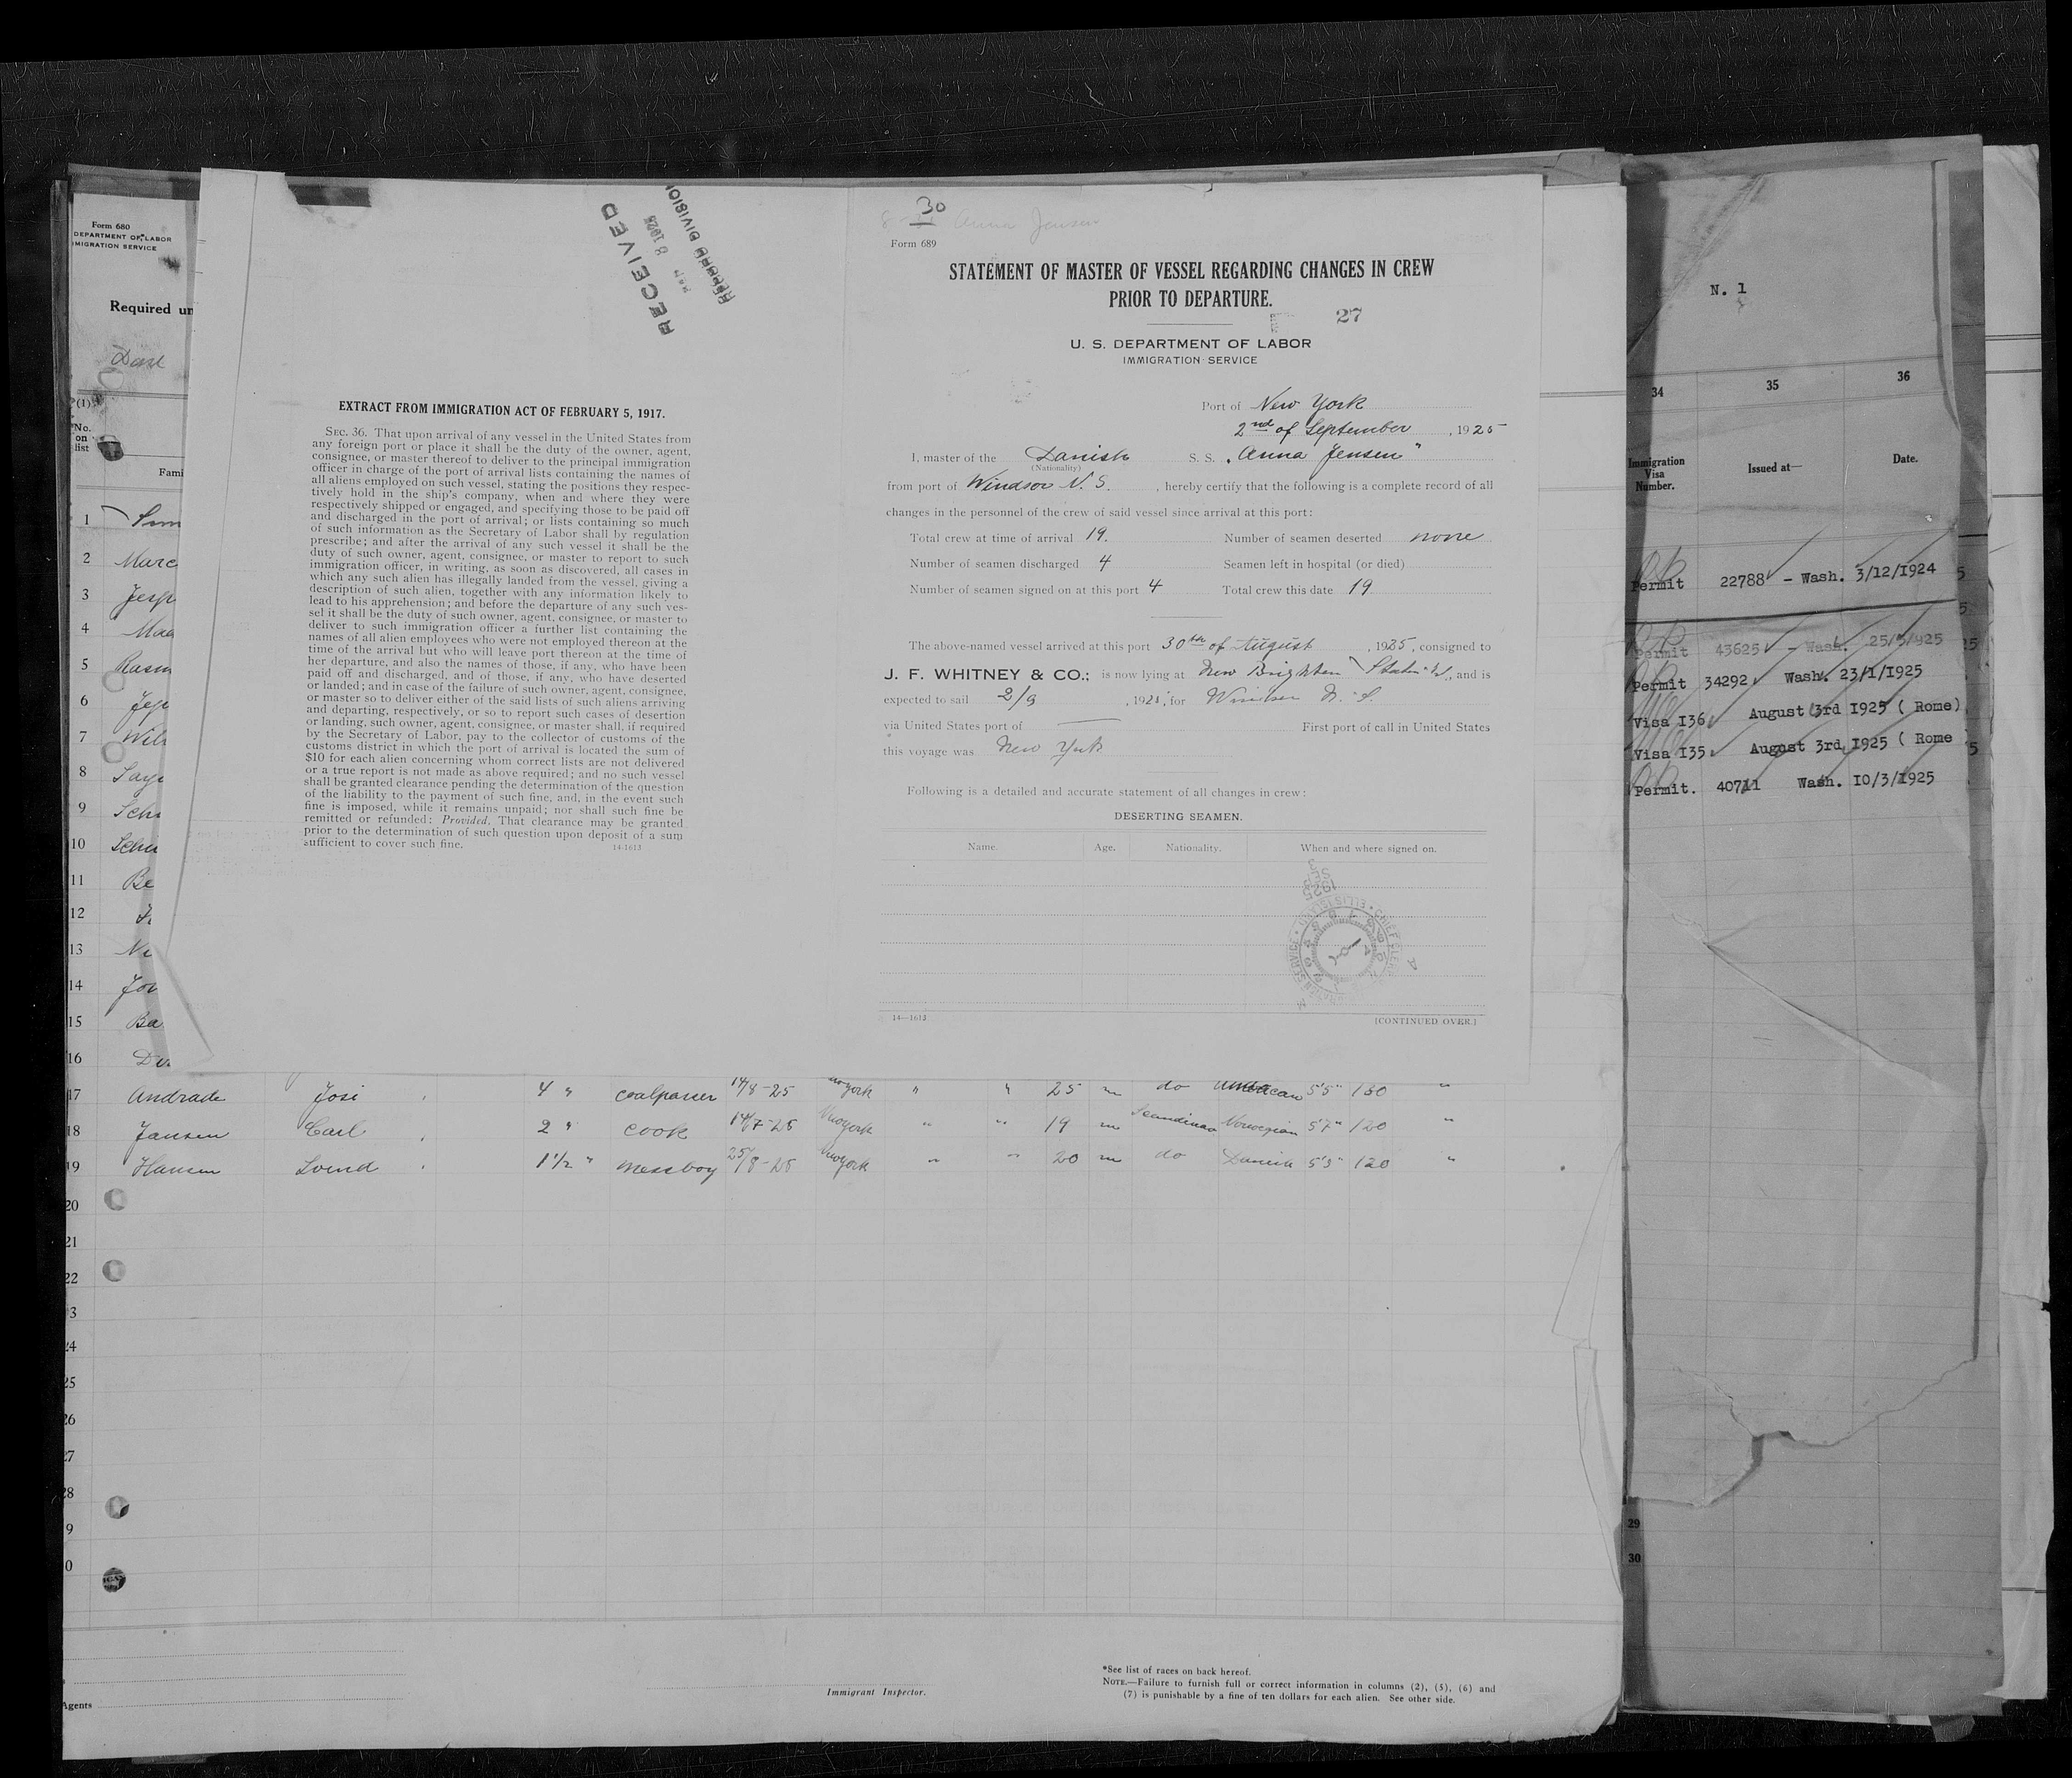 Form 680
DEPARTMENT OF LABOR
IMMIGRATION SERVICE
Required un
(1)
No.
on
list
Fami
1
2 Marc
3 Jesp
4 Mad
5 Rasm
6 Jepp
7 Wilh
8
9 Sch
10 Schu
11 Be
12
13
14
15 Ba
16
RECEIVED
8 1925
RECORD DIVISION
EXTRACT FROM IMMIGRATION ACT OF FEBRUARY 5, 1917.
SEC. 36. That upon arrival of any vessel in the United States from
any foreign port or place it shall be the duty of the owner, agent,
consignee, or master thereof to deliver to the principal immigration
officer in charge of the port of arrival lists containing the names of
all aliens employed on such vessel, stating the positions they respec-
tively hold in the ship's company, when and where they were
respectively shipped or engaged, and specifying those to be paid off
and discharged in the port of arrival; or lists containing so much
of such information as the Secretary of Labor shall by regulation
prescribe; and after the arrival of any such vessel it shall be the
duty of such owner, agent, consignee, or master to report to such
immigration officer, in writing, as soon as discovered, all cases in
which any such alien has illegally landed from the vessel, giving a
description of such alien, together with any information likely to
lead to his apprehension; and before the departure of any such ves-
sel it shall be the duty of such owner, agent, consignee, or master to
deliver to such immigration officer a further list containing the
names of all alien employees who were not employed thereon at the
time of the arrival but who will leave port thereon at the time of
her departure, and also the names of those, if any, who have been
paid off and discharged, and of those, if any, who have deserted
or landed; and in case of the failure of such owner, agent, consignee,
or master so to deliver either of the said lists of such aliens arriving
and departing, respectively, or so to report such cases of desertion
or landing, such owner, agent, consignee, or master shall, if required
by the Secretary of Labor, pay to the collector of customs of the
customs district in which the port of arrival is located the sum of
$10 for each alien concerning whom correct lists are not delivered
or a true report is not made as above required; and no such vessel
shall be granted clearance pending the determination of the question
of the liability to the payment of such fine, and, in the event such
fine is imposed, while it remains unpaid; nor shall such fine be
remitted or refunded: Provided, That clearance may be granted
prior to the determination of such question upon deposit of a sum
sufficient to cover such fine.
14-1613
30
Anna Jensen
Form 689
STATEMENT OF MASTER OF VESSEL REGARDING CHANGES IN CREW
PRIOR TO DEPARTURE.
27
U. S. DEPARTMENT OF LABOR
IMMIGRATION SERVICE
Port of New York
2nd of September, 1925
I, master of the Danish S. S. "Anna Jensen"
(Nationality)
from port of Windsor N. S., hereby certify that the following is a complete record of all
changes in the personnel of the crew of said vessel since arrival at this port:
Total crew at time of arrival 19. Number of seamen deserted none
Number of seamen discharged 4 Seamen left in hospital (or died)
Number of seamen signed on at this port 4 Total crew this date 19
The above-named vessel arrived at this port 30th of August, 1925, consigned to
J. F. WHITNEY & CO.; is now lying at New Brighton Staten Is., and is
expected to sail 2/9, 1925, for Windsor N. S.
via United States port of First port of call in United States
this voyage was New York
Following is a detailed and accurate statement of all changes in crew:
DESERTING SEAMEN.
Name. Age. Nationality. When and where signed on.
1925
SEP
3
14-1613 (CONTINUED OVER.)
17 Andrade Josi 4 " coalpasser 14/8-25 " " 25 m do 5'5" 130 "
18 Jansen Carl 2 " cook 14/7-25 Newyork " " 19 m Scandinav Norwegian 5'7" 120 "
19 Hansen Svend 1 1/2 " messboy 25/8-25 Newyork " " 20 m do Danish 5'5" 120 "
20
21
22
3
24
25
26
27
28
9
0
Agents
Immigrant Inspector.
*See list of races on back hereof.
NOTE.—Failure to furnish full or correct information in columns (2), (5), (6) and
(7) is punishable by a fine of ten dollars for each alien. See other side.
N. 1
34 35 36
Immigration
Visa
Number.
Issued at— Date.
Permit 22788 - Wash. 3/12/1924
Permit 43625 - Wash. 25/5/925
Permit 34292 Wash. 23/1/1925
Visa I36 August 3rd 1925 ( Rome)
Visa I35 August 3rd 1925 ( Rome
Permit. 40711 Wash. 10/3/1925
29
30